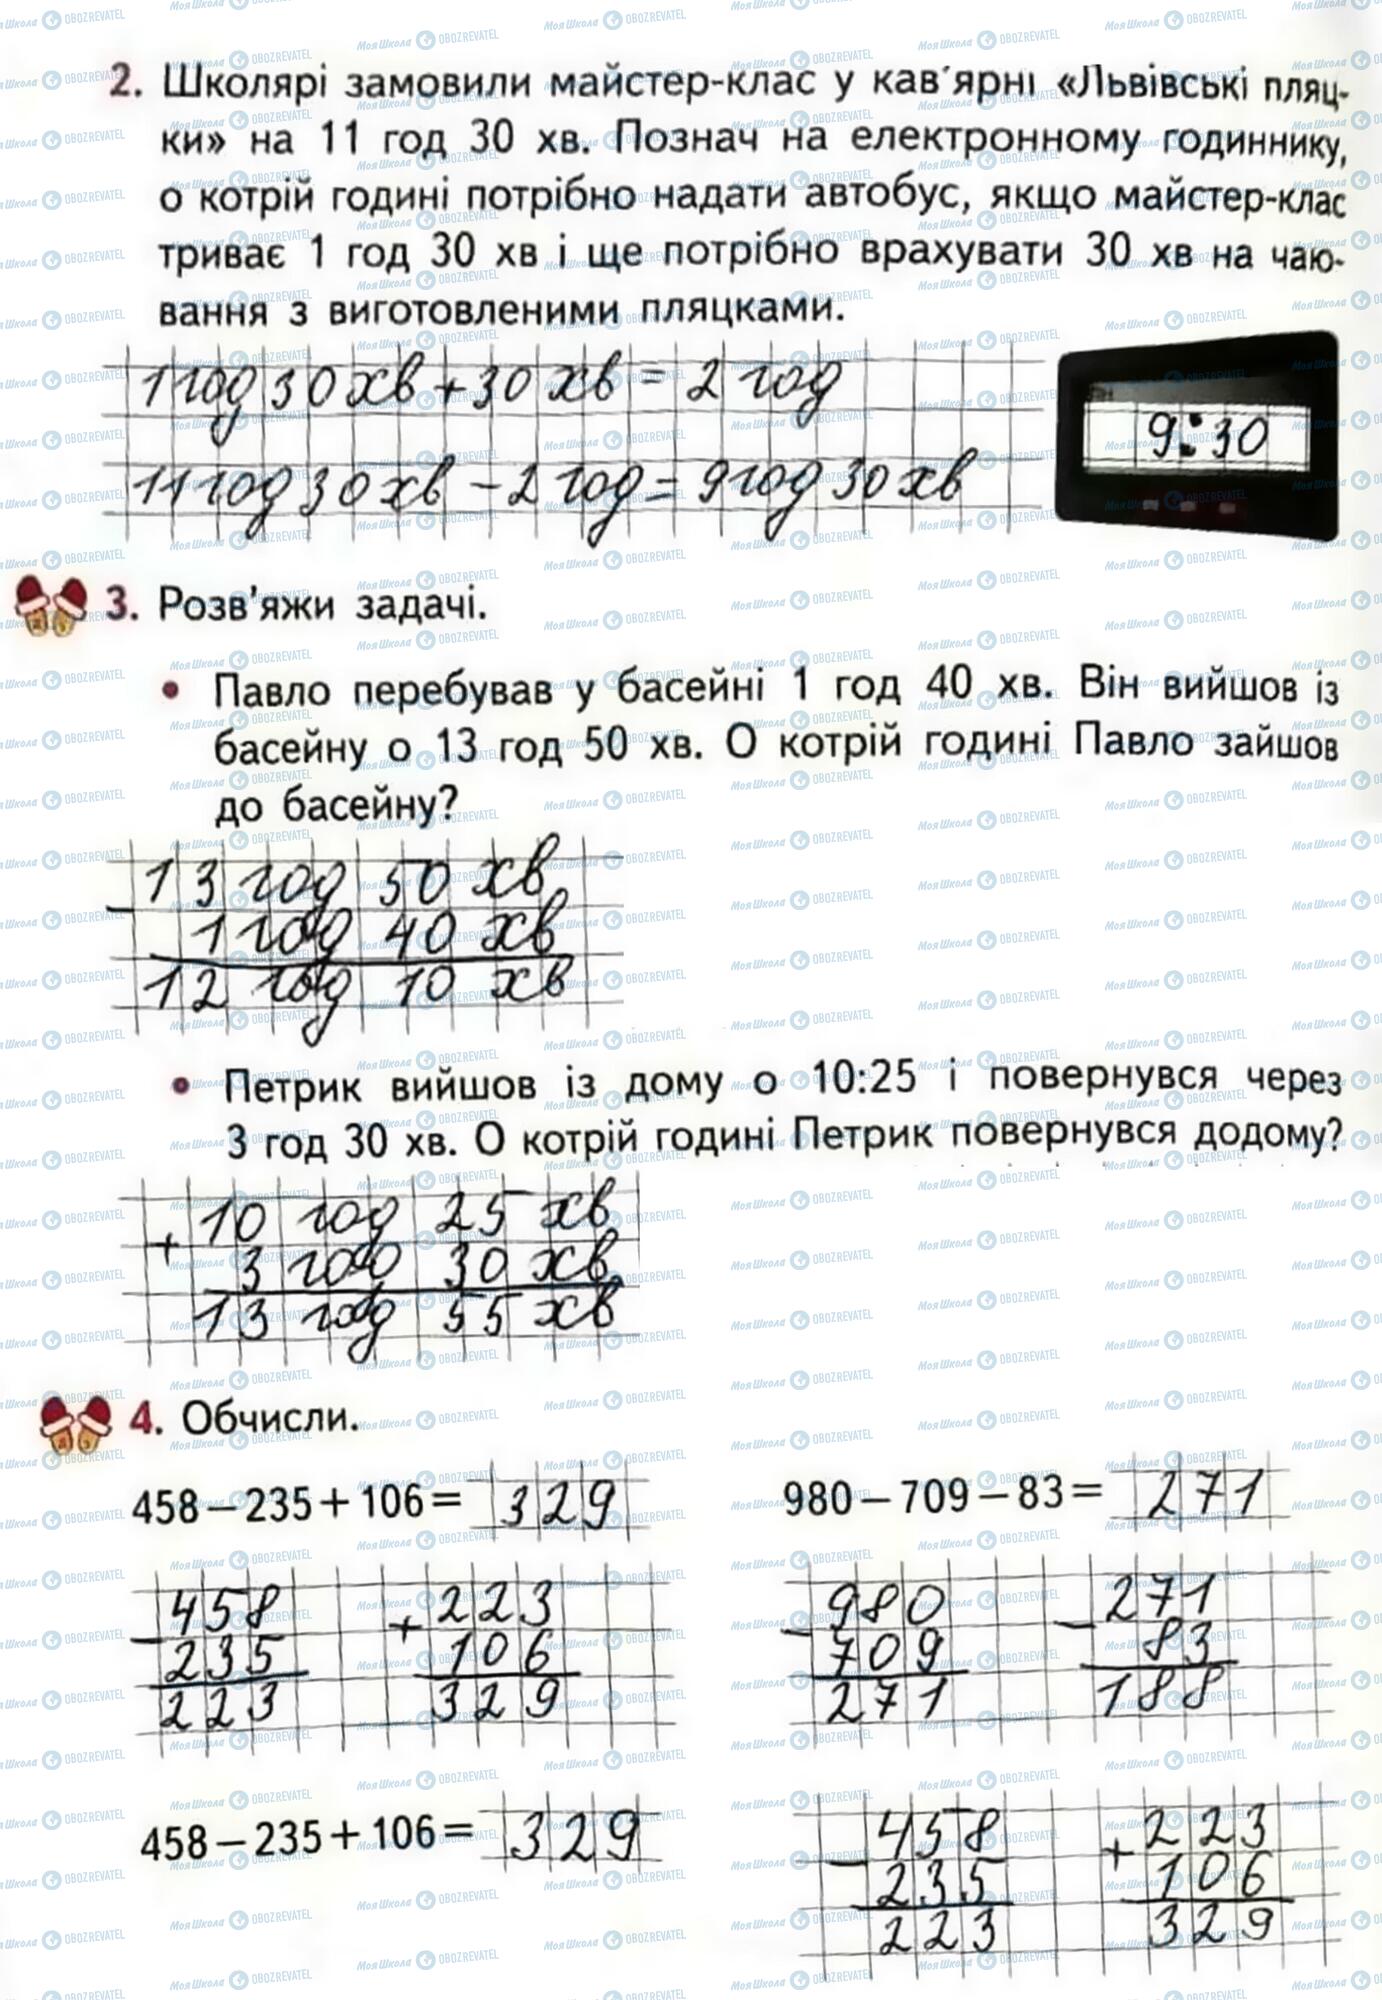 2. Школярі замовили майстер-клас у кав'ярні «Львівські пляц-
ки» на 11 год 30 хв. Познач на електронному годиннику,
о котрій годині потрібно надати автобус, якщо майстер-клас
триває 1 год 30 хв і ще потрібно врахувати 30 хв на чаю-
вання з виготовленими пляцками.
1 год 30 хв + 30 хв = 2 год
9:30
11 год 30 хв - 2 год = 9 год 30 хв
3. Розв'яжи задачі.
• Павло перебував у басейні 1 год 40 хв. Він вийшов із
басейну о 13 год 50 хв. О котрій годині Павло зайшов
до басейну?
13 год 50 хв
-
1 год 40 хв
12 год 10 хв
• Петрик вийшов із дому о 10:25 і повернувся через
3 год 30 хв. О котрій годині Петрик повернувся додому?
10 год 25 хв
+
3 год 30 хв
13 год 55 хв
4. Обчисли.
458 – 235 + 106 = 329
980 – 709 – 83 = 271
458 + 223
- 235 106
223 329
980 - 271
- 709 83
271 188
458 – 235 + 106 = 329
458 + 223
- 235 106
223 329
МояШкола OBOZREVATEL